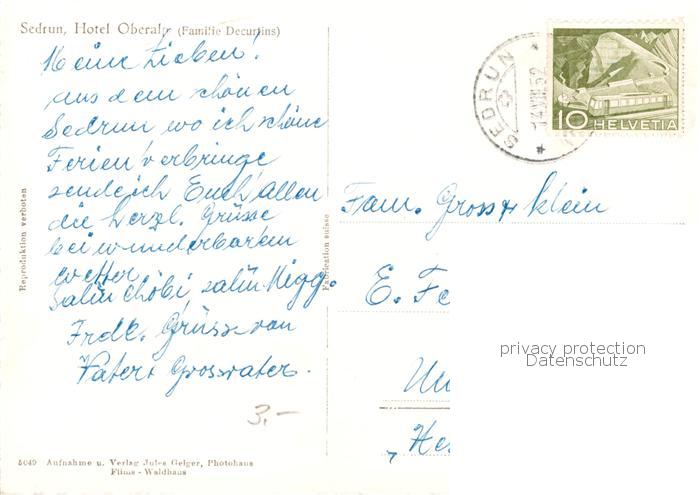 Sedrun, Hotel Oberalp (Familie Decurtins)
Meine Lieben!
aus dem schönen
Sedrun wo ich schöne
Ferien verbringe
sende ich Euch Allen
die herzl. Grüsse
bei wunderbarem
wetter.
Salü Chöbi salü Migg.
Frdl. Grüsse von
Vater & Grossvater.
3.-
5049 Aufnahme u. Verlag Jules Geiger, Photohaus
Flims - Waldhaus
Reproduktion verboten
Fabrication suisse
SEDRUN
14.VIII.52
10 HELVETIA
Fam. Gross & klein
E. Fe
privacy protection
Datenschutz